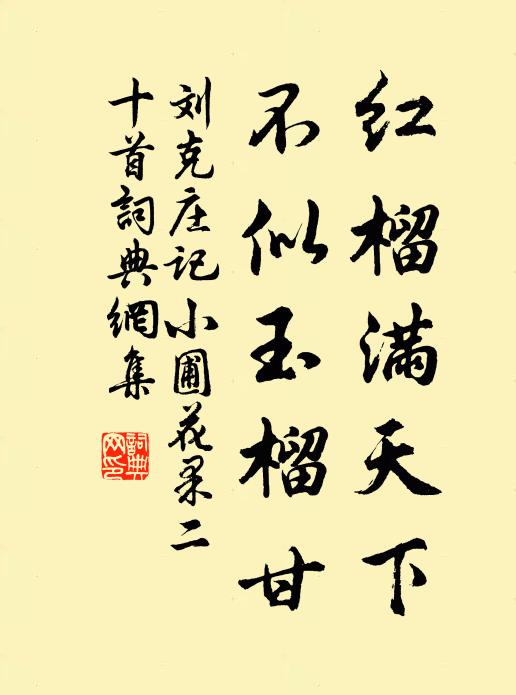 红榴满天下
不似玉榴甘
刘克庄记小圃花果二
十首詞典網集
詞典
网印